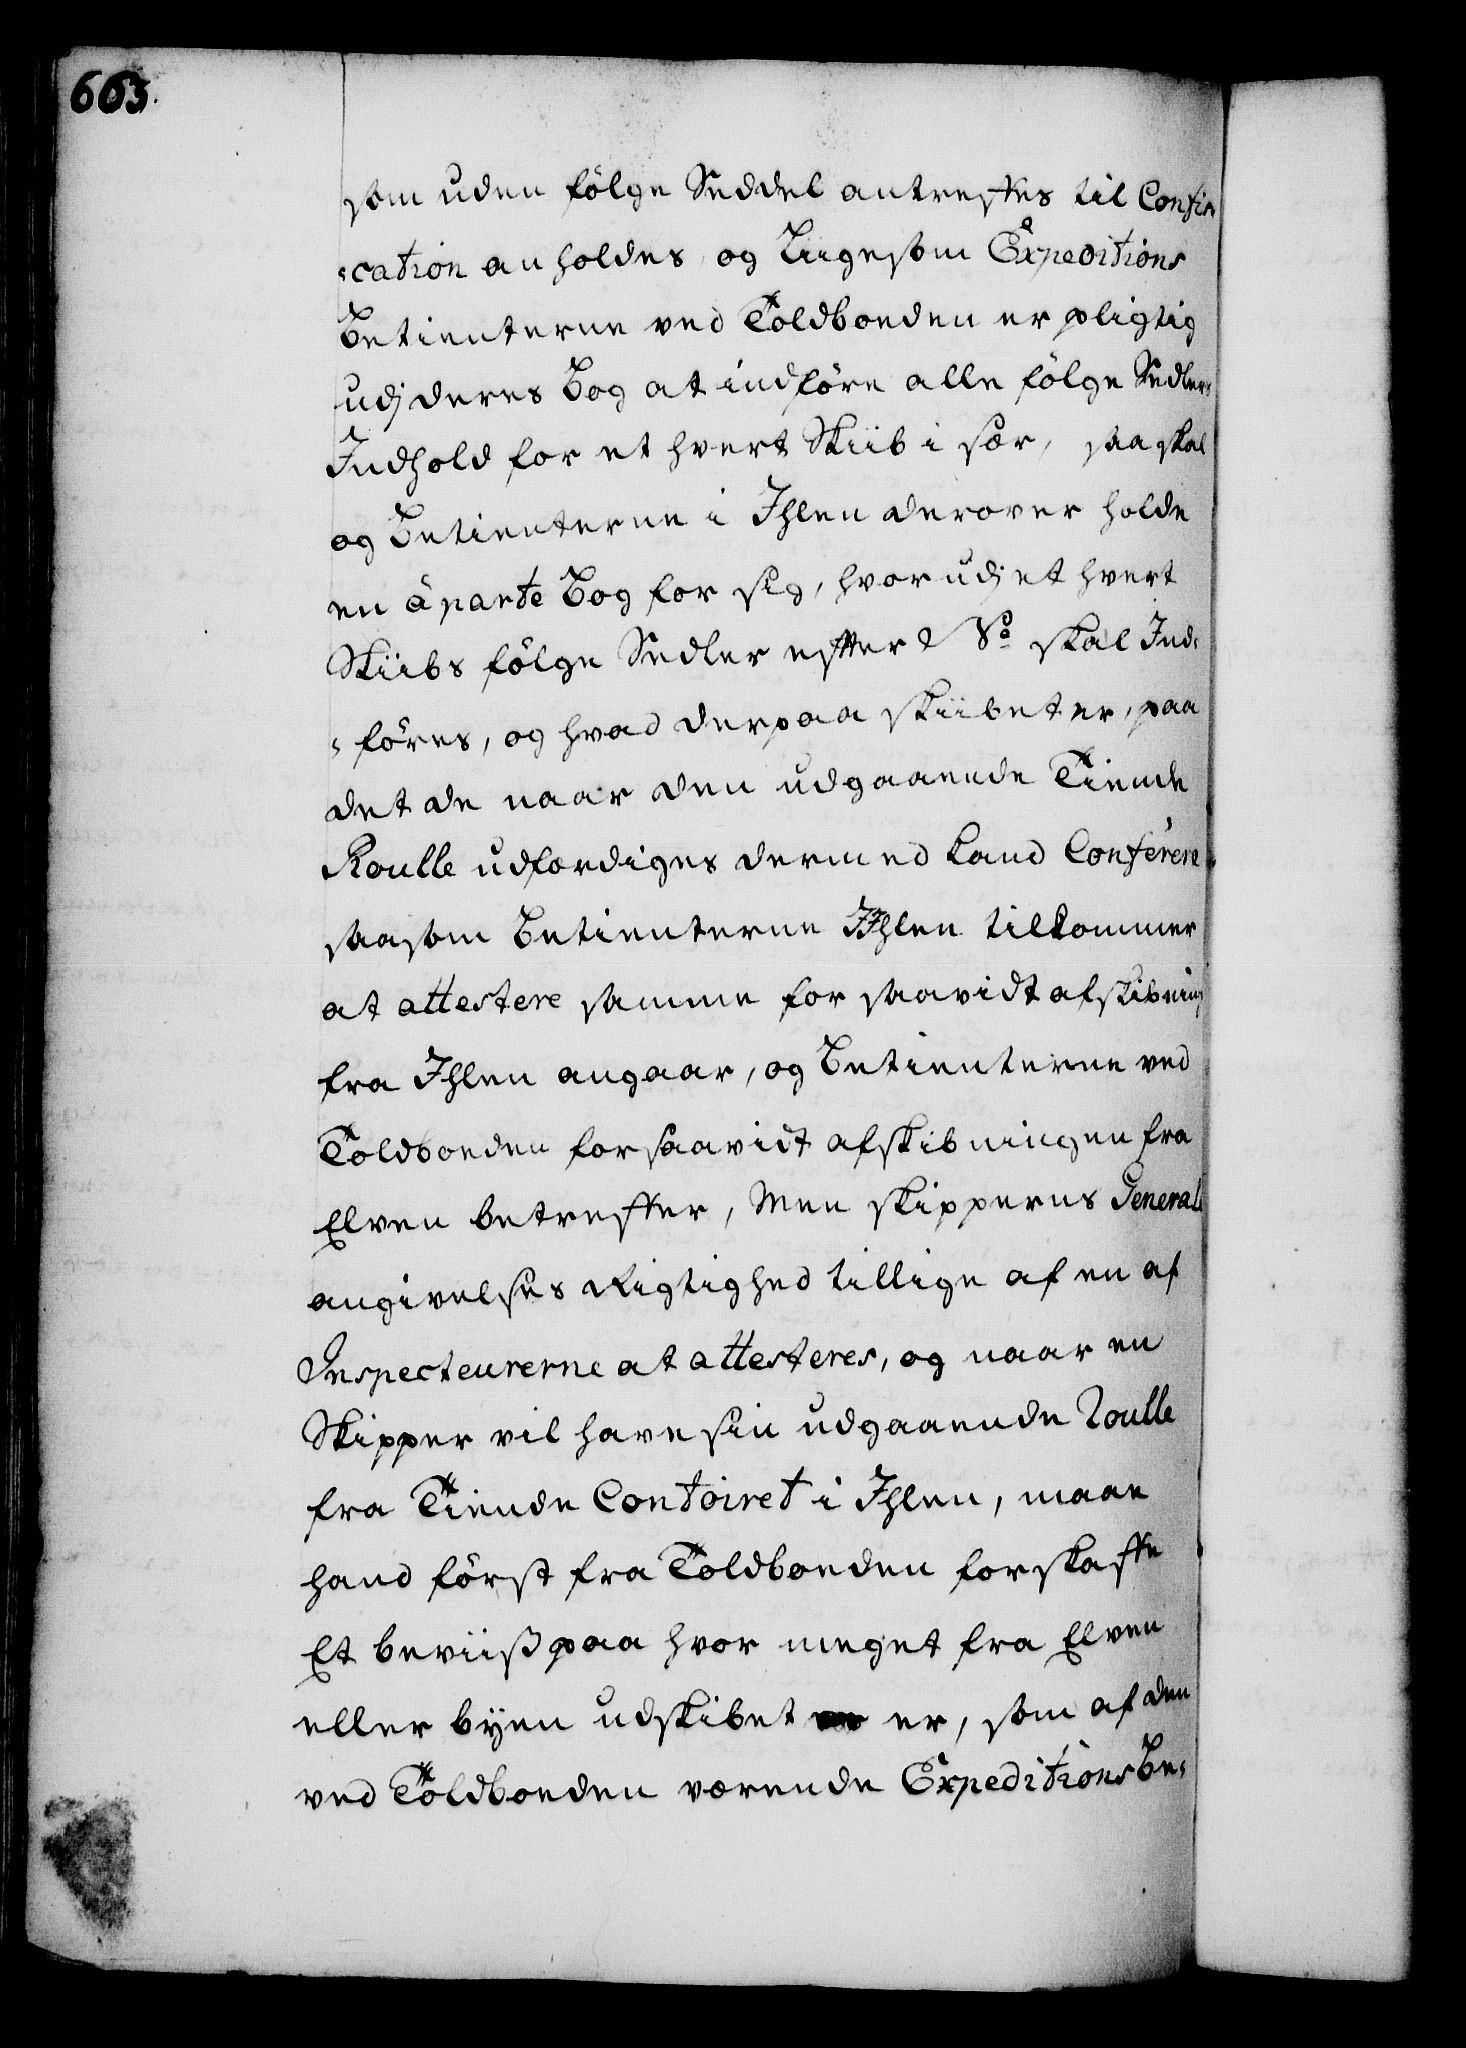 663.
som uden følge Seddel antreffes til Confis
=cation anholdes, og Liigesom Expeditions
Betienterne ved Toldboeden er pligtig
udj deres Bog at indføre alle følge Sedlers
Indhold for et hvert Skiib i sær, saa skal
og Betienterne i Ihlen derover holde
en áparte Bog for sig, hvorudj et hvert
Skiibs følge Sedler efter No skal Ind=
=føres, og hvad derpaa skiibet er, paa
det de naar den udgaaende Tiende
Roulle udfærdiges dermed kand Conferere
saasom Betienterne i Ihlen tilkommer
at attestere samme for saavidt afskibning
fra Ihlen angaar, og Betienterne ved
Toldboeden forsaavidt afskibningen fra
Elven betreffer, Men skipperens General
angivelses Rigtighed tillige af en af
Inspecteurerne at attesteres, og naar en
Skipper vil have sin udgaaende Roulle
fra Tiende Contoiret i Ihlen, maae
hand først fra Toldboeden forskaffe
Et beviiß paa hvor meget fra Elven
eller byen udskibet er, som af den
ved Toldboeden værende Expeditions Be=